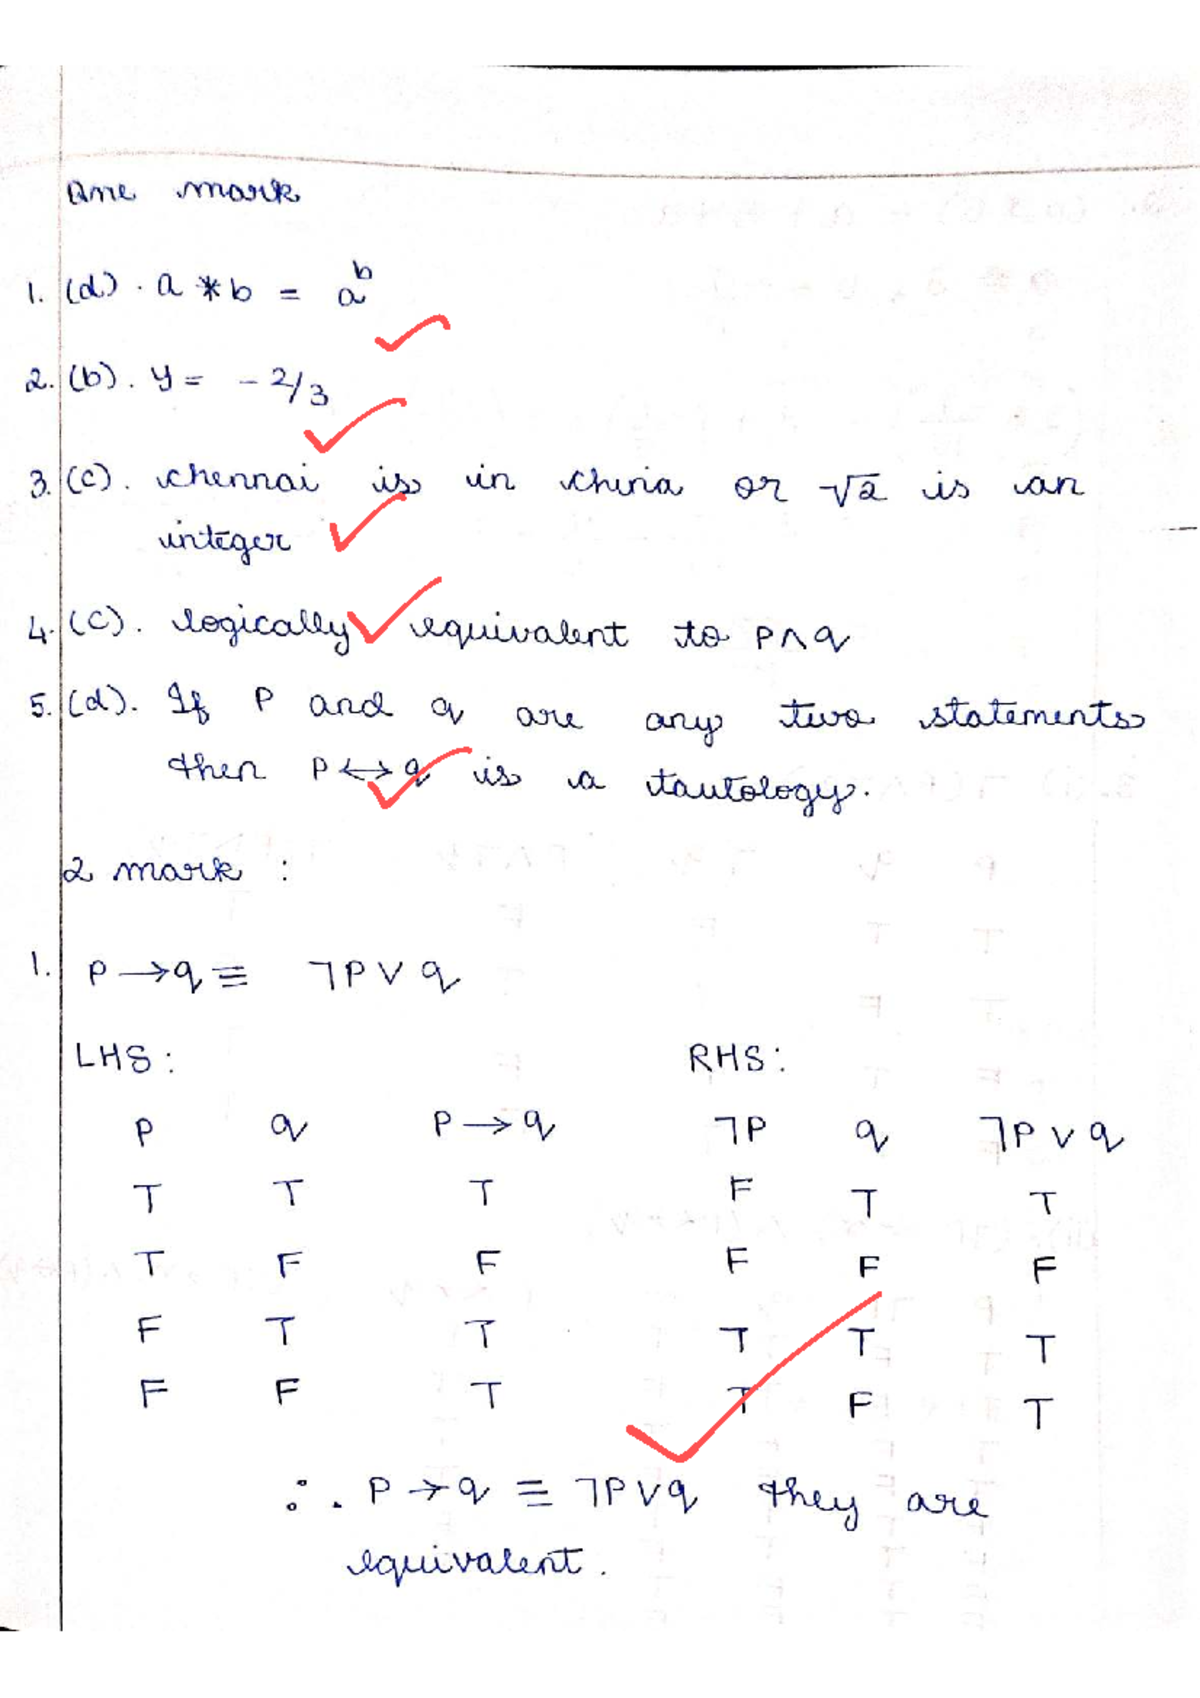 One mark
1. (d). a * b = a^b
2. (b). y = - 2/3
3. (c). chennai is in china or √2 is an
integer
4. (c). logically equivalent to p∧q
5. (d). If P and q are any two statements
then P ↔ q is a tautology.
2 mark :
1. P → q ≡ ¬P ∨ q
LHS : RHS :
P q P → q ¬P q ¬P ∨ q
T T T F T T
T F F F F F
F T T T T T
F F T T F T
∴ . P → q ≡ ¬P∨q they are
equivalent.